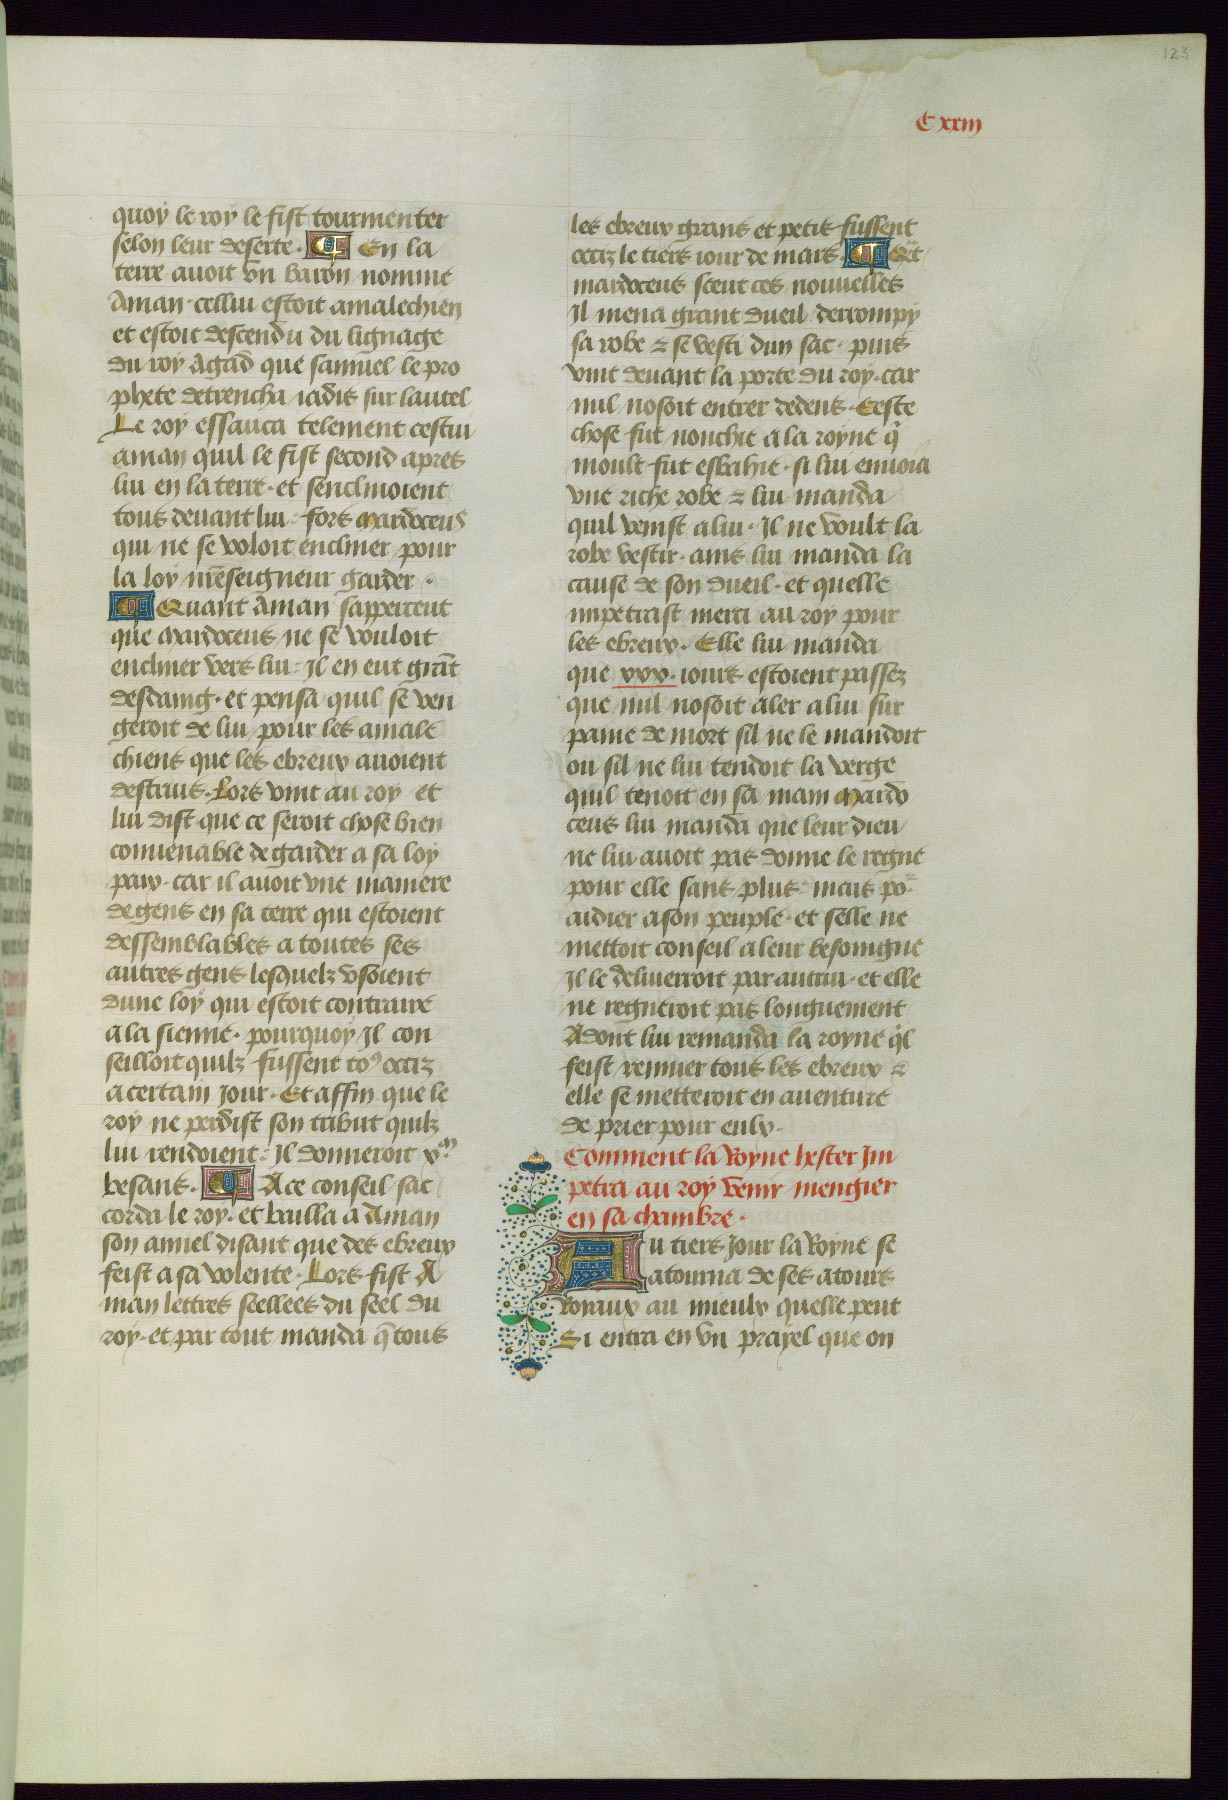 123
C xxiij
quoy le roy le fist tourmenter
selon leur deserte · En la
terre auoit vn baron nomme
Aman · cellui estoit amalechien
et estoit descendu du lignage
du roy Agad que samuel le pro
phete detrencha iadis sur lautel
Le roy essauca telement cestui
aman quil le fist second apres
lui en la terre · et senclinoient
tous deuant lui · fors mardoceus
qui ne se voloit encliner pour
la loy nr̄eseigneur garder ·
Quant Aman sapperceut
que mardoceus ne se vouloit
encliner vers lui · Il en eut grāt
desdaing · et pensa quil se ven
geroit de lui pour les amale
chiens que les ebreux auoient
destruis · Lors vint au roy et
lui dist que ce seroit chose bien
conuenable de garder a sa loy
paix · car il auoit vne maniere
de gens en sa terre qui estoient
dessemblables a toutes ses
autres gens lesquelz vsoient
dune loy qui estoit contraire
a la sienne · pourquoy Il con
seilloit quilz fussent to⁹ occiz
a certain jour · Et affin que le
roy ne perdist son tribut quilz
lui rendoient · Il donneroit xᵐ
besans · A ce conseil sac
corda le roy · et bailla a Aman
son annel disant que des ebreux
feist a sa volente · Lors fist A
man lettres seellees du seel du
roy · et par tout manda q̄ tous
les ebreux grans et petit fussent
occiz le tiers iour de mars ·
mardoceus sceut ces nouuelles
Il mena grant dueil / derrompy
sa robe ⁊ se vesti dun sac · puis
vint deuant la porte du roy · car
nul nosoit entrer dedens · Ceste
chose fut nonchie a la royne q̄
moult fut esbahie · si lui enuoia
vne riche robe ⁊ lui manda
quil venist a lui · Il ne voult la
robe vestir · ains lui manda la
cause de son dueil · et quelle
impetrast merci au roy pour
les ebreux · Elle lui manda
que xxx · iours estoient passez
que nul nosoit aler a lui sur
paine de mort sil ne le mandoit
ou sil ne lui tendoit la verge
quil tenoit en sa main mardo
ceus lui manda que leur dieu
ne lui auoit pas donne le regne
pour elle sans plus · mais po᷑
aidier a son peuple · et selle ne
mettoit conseil a leur besoingne
Il le deliuerroit par autrui · et elle
ne regneroit pas longuement
Adont lui remanda la royne q̄l
feist reuuer tous les ebreux ⁊
elle se metteroit en auenture
de prier pour eulx ·
Comment la Royne hester Im
petra au roy venir mengier
en sa chambre ·
Au tiers jour la Royne se
atourna de ses atours
royaux au mieulx quelle peut
Si entra en vn prayel que on